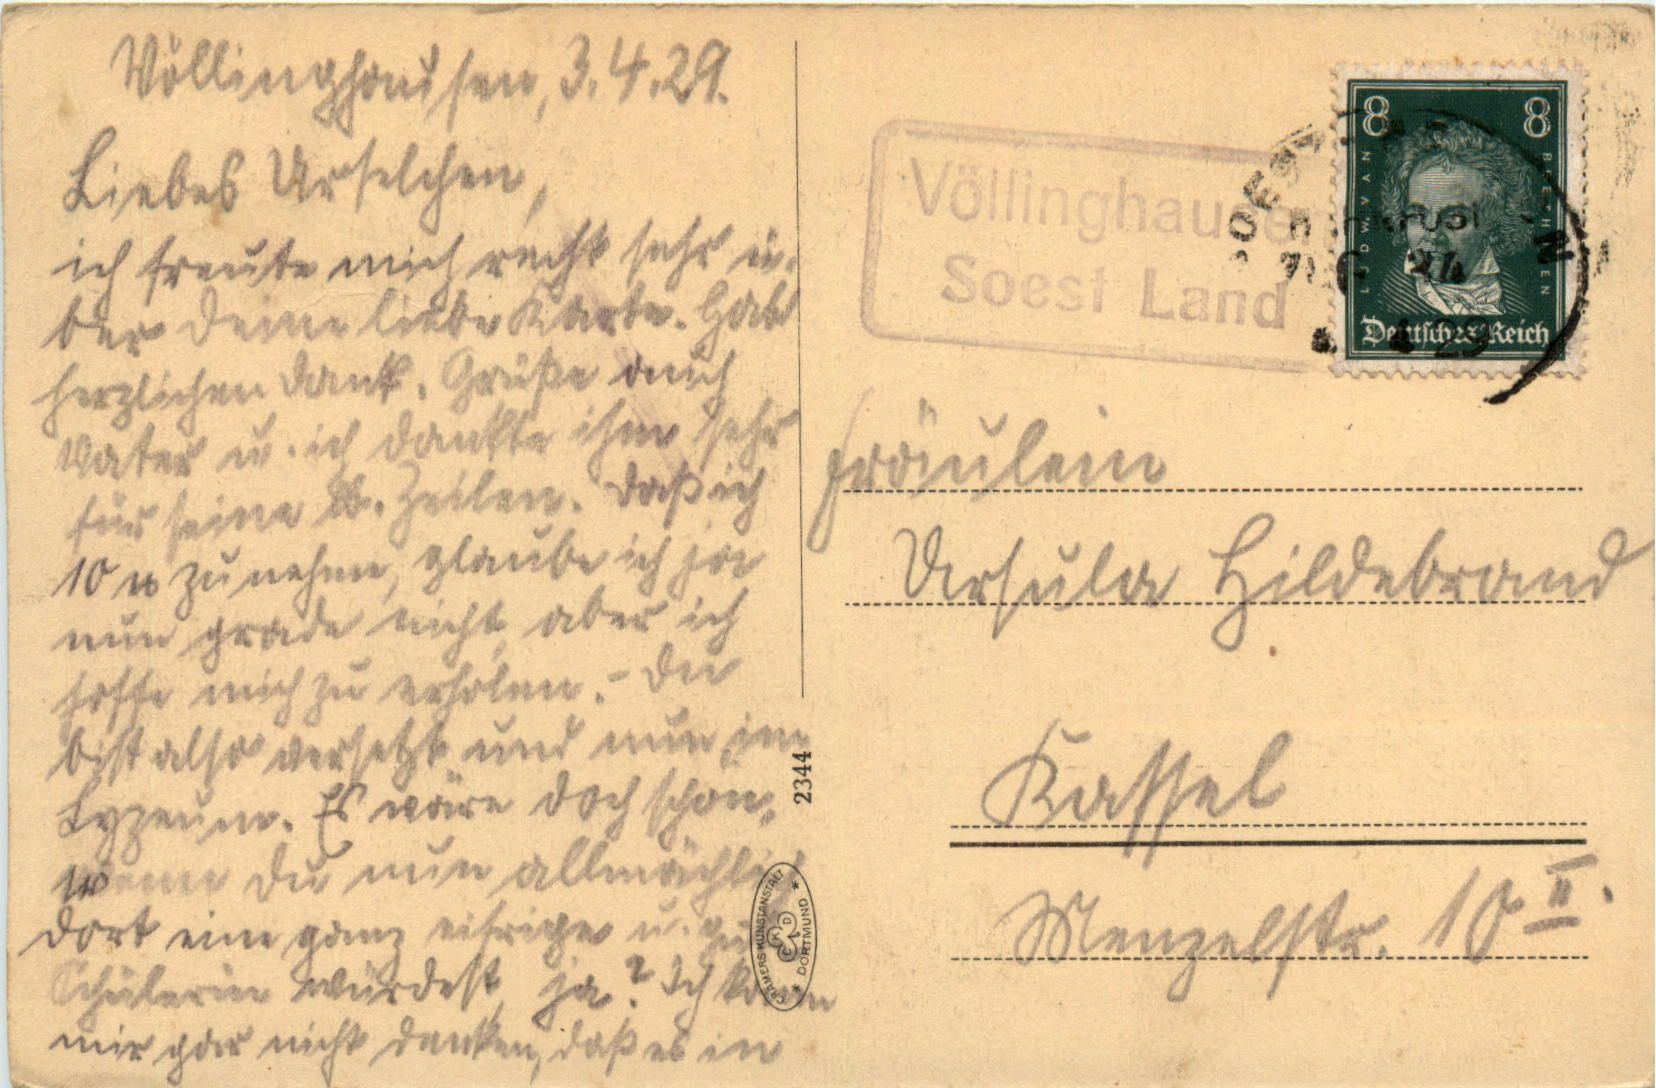 Völlinghausen, 3.4.29.
Liebes Urselchen,
ich freute mich recht sehr ü-
ber Deine liebe Karte. Hab
herzlichen Dank. Grüße auch
Vater u. ich dankte ihm sehr
für seine lb. Zeilen. Daß ich
10 ℔ zunehme, glaube ich ja
nun grade nicht, aber ich
hoffe mich zu erholen. - Du
bist also versetzt und nun im
Lyzeum. Es wäre doch schön,
wenn Du nun allmählich
dort eine ganz eifrige u. gute
Schülerin würdest, ja? Ich kann
mir gar nicht denken, daß es in
2344
CRÄMERS KUNSTANSTALT * DORTMUND *
CKD
Völlinghausen
Soest Land
8 8
LUDW. VAN BEETHOVEN
Deutsches Reich
Fräulein
Ursula Hildebrand
Kassel
Menzelstr. 10 II.